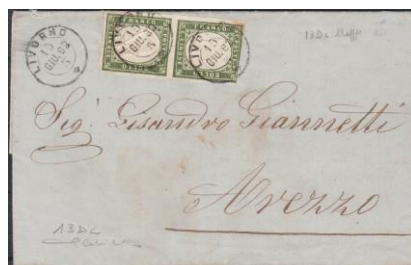 LIVORNO
15
GIU.62
LIVORNO
15
GIU.62
LIVORNO
15
GIU.62
13Dc
Sig. Lisandro Giannetti
Arezzo
13Dc